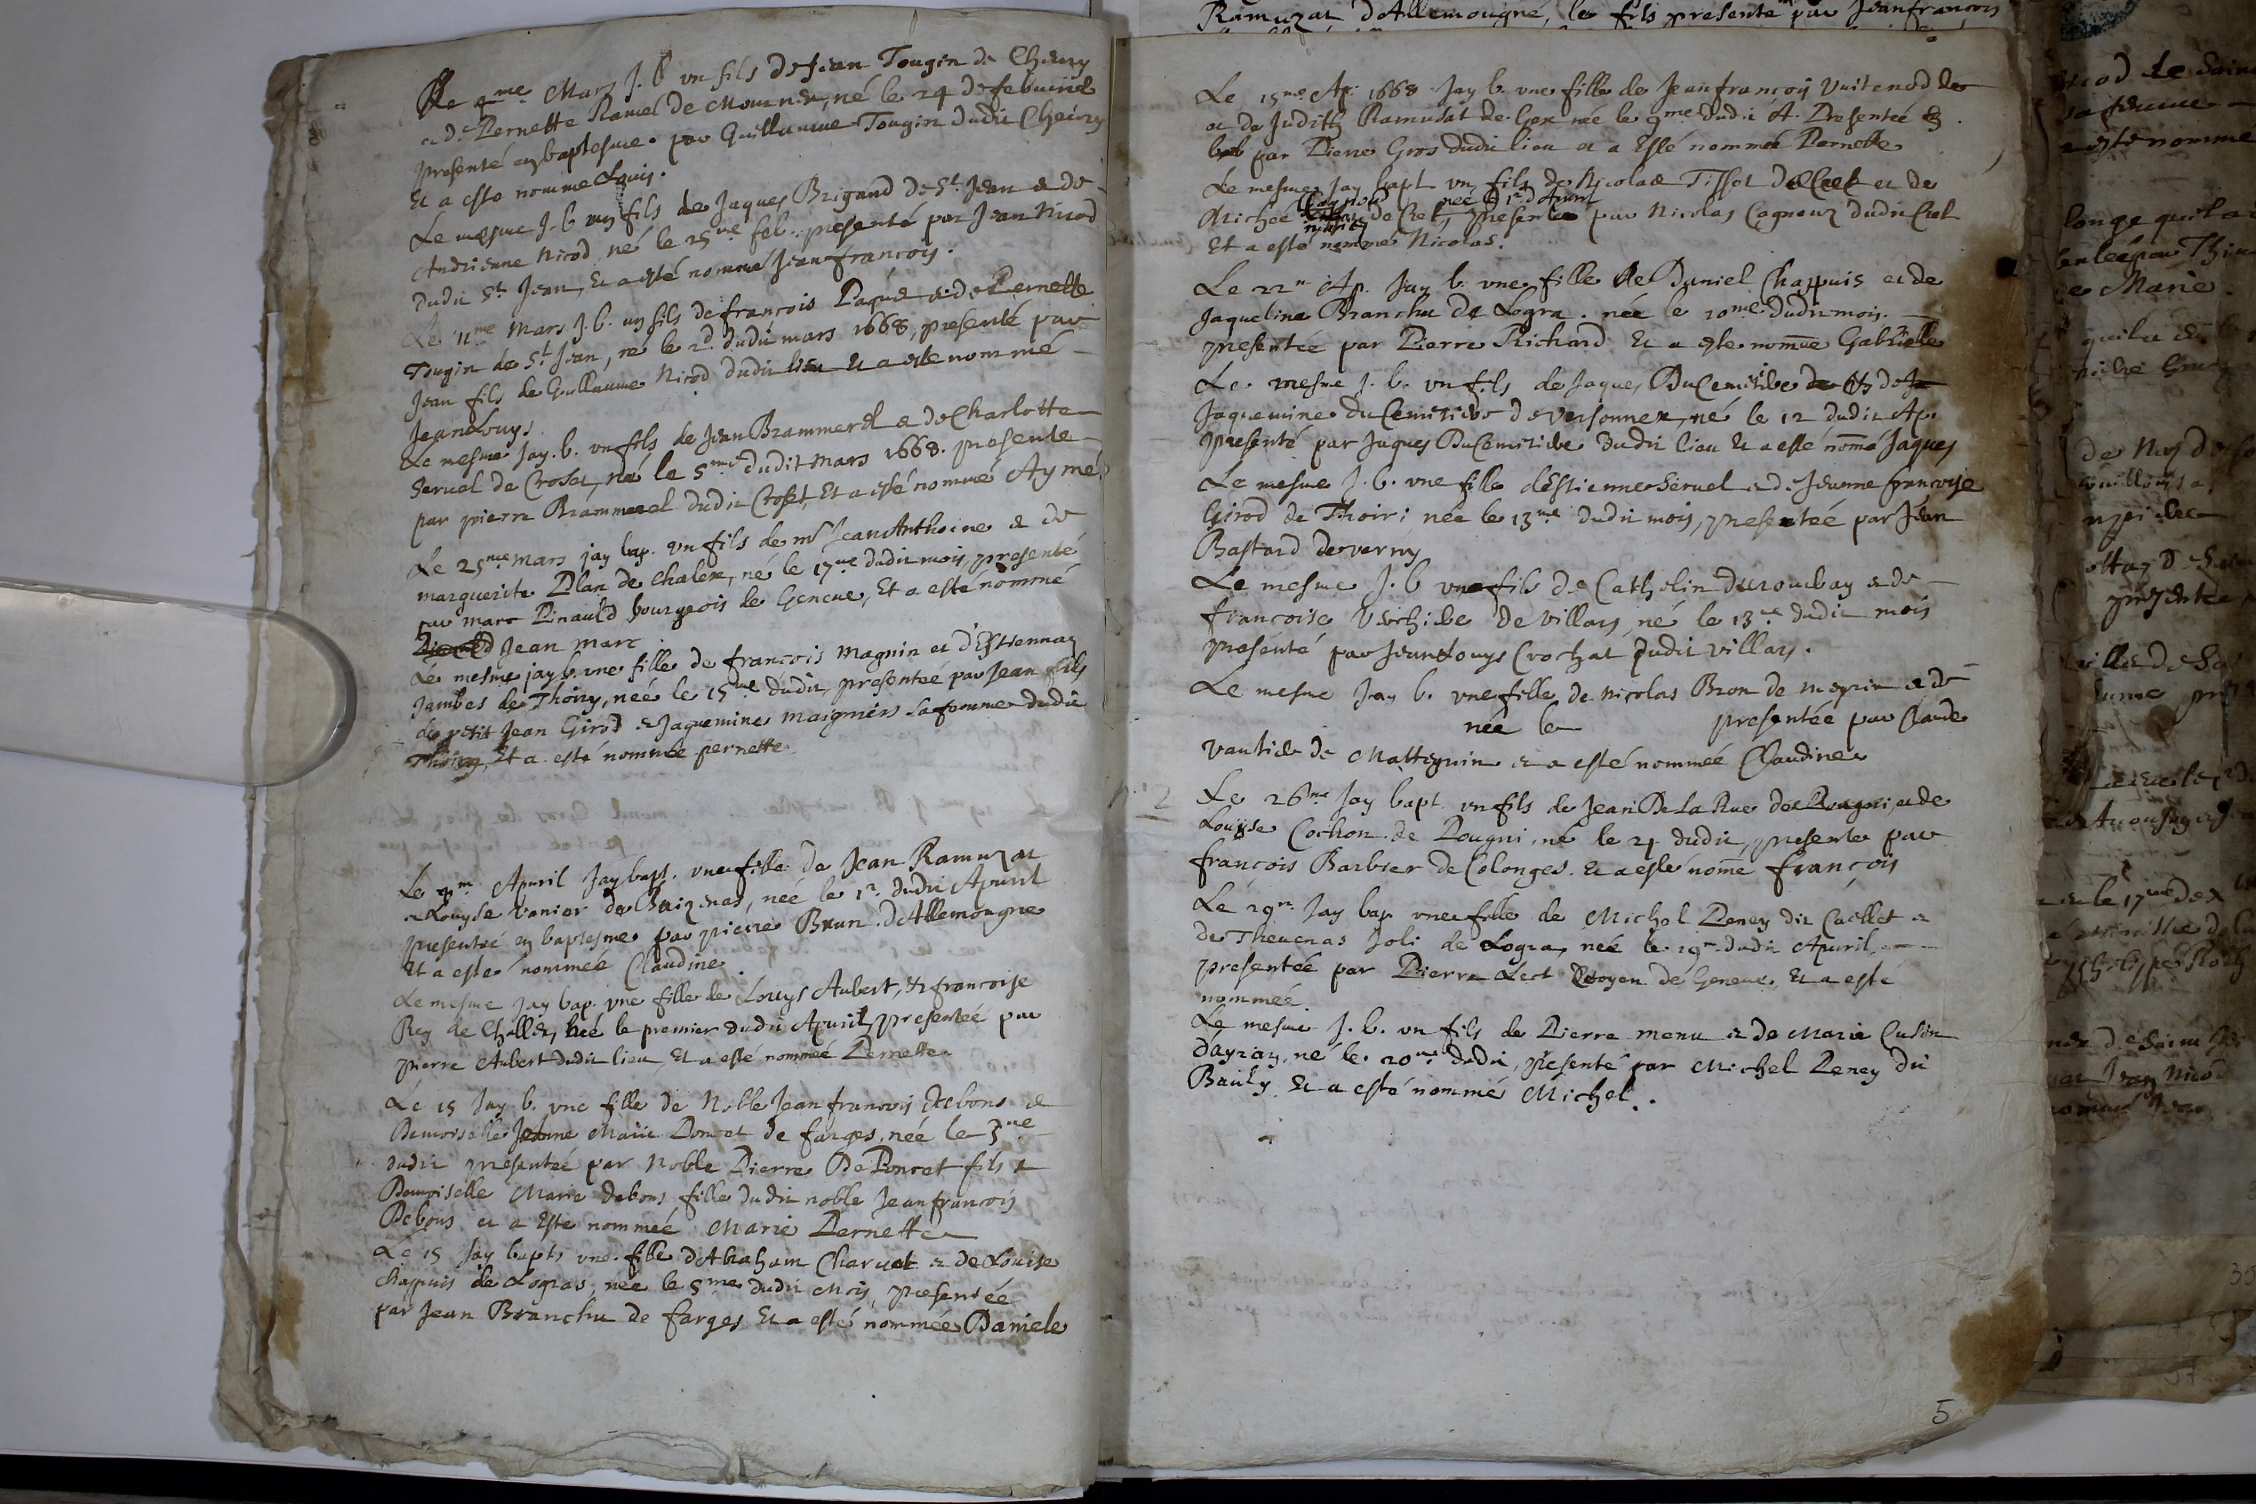 Le 4me Mars J. b vn fils de Jean Tougin de Cheury
& de Pernette Ramel de Mournex, né le 24 de feburier
presenté en baptesme par Guillaume Tougin dudit Cheury
Et a este nomme Louis.
Le mesme J. b. un fils de Jaques Brigand de St. Jean & de
Andrienne Nicod, né le 25me feb. presenté par Jean Nicod
dudit St. Jean, Et a esté nommé Jean françois.
Le 11me Mars J. b. un fils de françois Paquis & de Pernette
Tougin de St. Jean, né le 2d. dudit mars 1668, presenté par
Jean fils de Gullaume Nicod dudit lieu et a este nommé
Jean Louys
Le mesme Jay. b. vn fils de Jean Brammerel & de Charlotte
Seruel de Croset, né le 5me dudit Mars 1668. presente
par pierre Brammerel dudit Croset, Et a esté nommé Aymé
Le 25me mars jay bap. vn fils de mr Jean Anthoine & de
marguerite Plan de Chalex, né le 17me dudit mois, presenté
par marc Pinauld bourgeois de Geneue, Et a esté nommé
Jean Marc
Le mesme jay b. vne fille de françois Magnin et d'Estiennaz
Jambes de Thoiry, née le 15me dudit, presentée par Jean fils
de petit Jean Girod & Jaquemine Maigniers sa femme dudit
Thoiry, Et a esté nommée pernette
Le Apuril Jay bapt. vne fille de Jean Ramuzat
& Louyse Vanier de Chaizenas, née le 1r. dudit Apuril
presentée en baptesme par pierre Brun d'Allemougne
Et a este nommée Claudine.
Le mesme jay bap. vne fille de Louys Aubert, & françoise
Rey de Challex, née le premier dudit Apuril, presentée par
pierre Aubert dudit lieu, Et a esté nommée Pernette
Le 15 Jay b. vne fille de Noble Jean françois Debons &
Demoiselle Jeanne Marie Poncet de farges, née le 3me
dudit presentée par Noble Pierre De Poncet fils &
Demoiselle Marie debons fille dudit noble Jean françois
Debons et a Este nommée Marie Pernette
Le 15 Jay bapts vne fille d'Abraham Charuet & de Louise
Chappuis de Logras, née le 5me dudit Mois, presentée
par Jean Branchu de farges Et a esté nommée Daniele
Ramuzat d'Allemougne, le fils presente par Jean francois
Le 15me Ap. 1668 Jay b. vne fille de Jean françois Vuitenod de
et de Judith Ramusat de Gex née le 9me dudit A. Presentée
par Pierre Gros dudit lieu et a Esté nommée Pernette
Le mesme Jay bapt vn fils de Nicolas Tissot de Cret et de
née le 1r d'Apuril
Michee de Cret, presenté par Nicolas Cagneux dudit Cret
Et a esté nommé Nicolas.
Le 22me Ap. Jay b. vne fille de Daniel Chappuis et de
Jaqueline Branchu de Logra. née le 20me dudit mois.
presentée par Pierre Richard Et a este nom̄ée Gabrielle
Le mesme J. b. vn fils de Jaques DuCemitiere & de
Jaquemine du Cemitiere de Versonnex, né le 12 dudit Ap.
presenté par Jaques DuCemitiere dudit lieu Et a esté nom̄é Jaques
Le mesme J. b. vne fille d'Estienne Seruel & de Jeanne françoise
Girod de Thoiri née le 13me dudit mois, presentée par Jean
Bastard de verny
Le mesme J. b vne fils de Catholin Durouubay & de
françoise Verchiere de Villars, né le 13me dudit mois
presenté par Jean Louys Crochat dudit Villars.
Le mesme Jay b. vne fille de Nicolas Bron de meyrin & de
née le presentée par Claude
Vautier de Mattegnin & a esté nommée Claudine
Le 26me Jay bapt vn fils de Jean De La Rue de Pougni, & de
Louyse Cochon de Pougni, né le 24 dudit, presente par
françois Barbier de Colonges. Et a este nom̄e françois
Le 29me Jay bap vne fille de Michel Peney dit Caillet &
de Theuenas Joli de Logra, née le 19me dudit Apuril
presentée par Pierre Lect Citoyen de Geneue, Et a esté
nommée
Le mesme J. b. vn fils de Pierre menu & de Marie Cusin
dayzay, né le 20me dudit, presenté par Michel Peney du
Bauly. Et a esté nommé Michel.
5